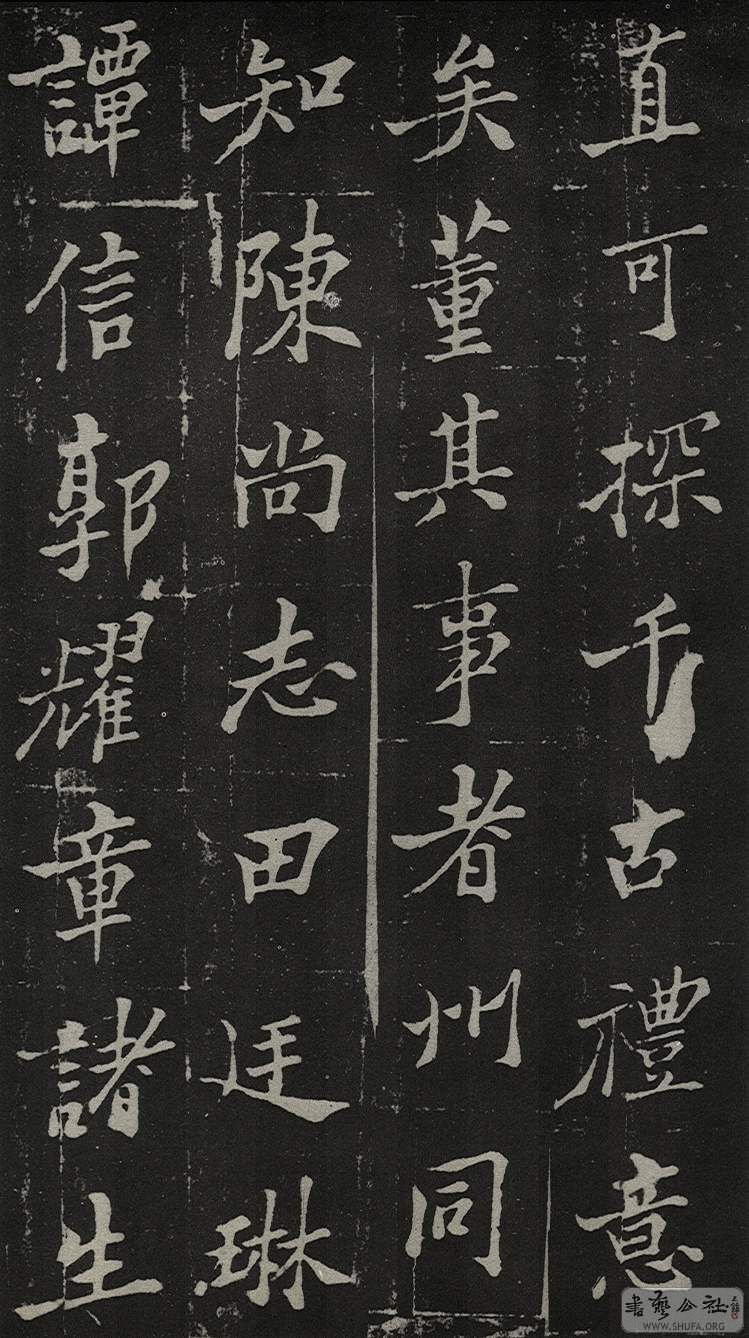 直可探千古禮意
矣董其事者州同
知陳尚志田廷琳
譚信郭耀章諸生
書藝公社
WWW.SHUFA.ORG